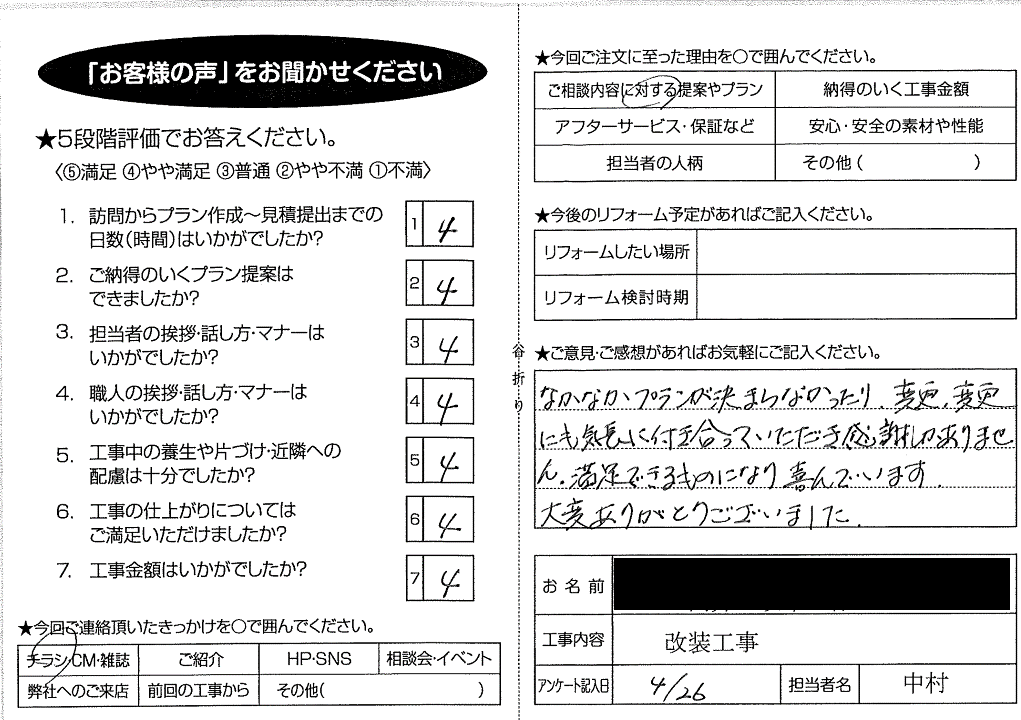 「お客様の声」をお聞かせください
★5段階評価でお答えください。
〈⑤満足 ④やや満足 ③普通 ②やや不満 ①不満〉
1. 訪問からプラン作成～見積提出までの
日数(時間)はいかがでしたか?
1 4
2. ご納得のいくプラン提案は
できましたか?
2 4
3. 担当者の挨拶・話し方・マナーは
いかがでしたか?
3 4
4. 職人の挨拶・話し方・マナーは
いかがでしたか?
4 4
5. 工事中の養生や片づけ・近隣への
配慮は十分でしたか?
5 4
6. 工事の仕上がりについては
ご満足いただけましたか?
6 4
7. 工事金額はいかがでしたか?
7 4
★今回ご連絡頂いたきっかけを○で囲んでください。
チラシ・CM・雑誌 ご紹介 HP・SNS 相談会・イベント
弊社へのご来店 前回の工事から その他( )
谷折り
★今回ご注文に至った理由を○で囲んでください。
ご相談内容に対する提案やプラン 納得のいく工事金額
アフターサービス・保証など 安心・安全の素材や性能
担当者の人柄 その他( )
★今後のリフォーム予定があればご記入ください。
リフォームしたい場所
リフォーム検討時期
★ご意見・ご感想があればお気軽にご記入ください。
なかなかプランが決まらなかったり、変更、変更
にも気長に付き合っていただき感謝しかありませ
ん。満足できるものになり喜んでいます。
大変ありがとうございました。
お名前
工事内容 改装工事
アンケート記入日 4/26 担当者名 中村